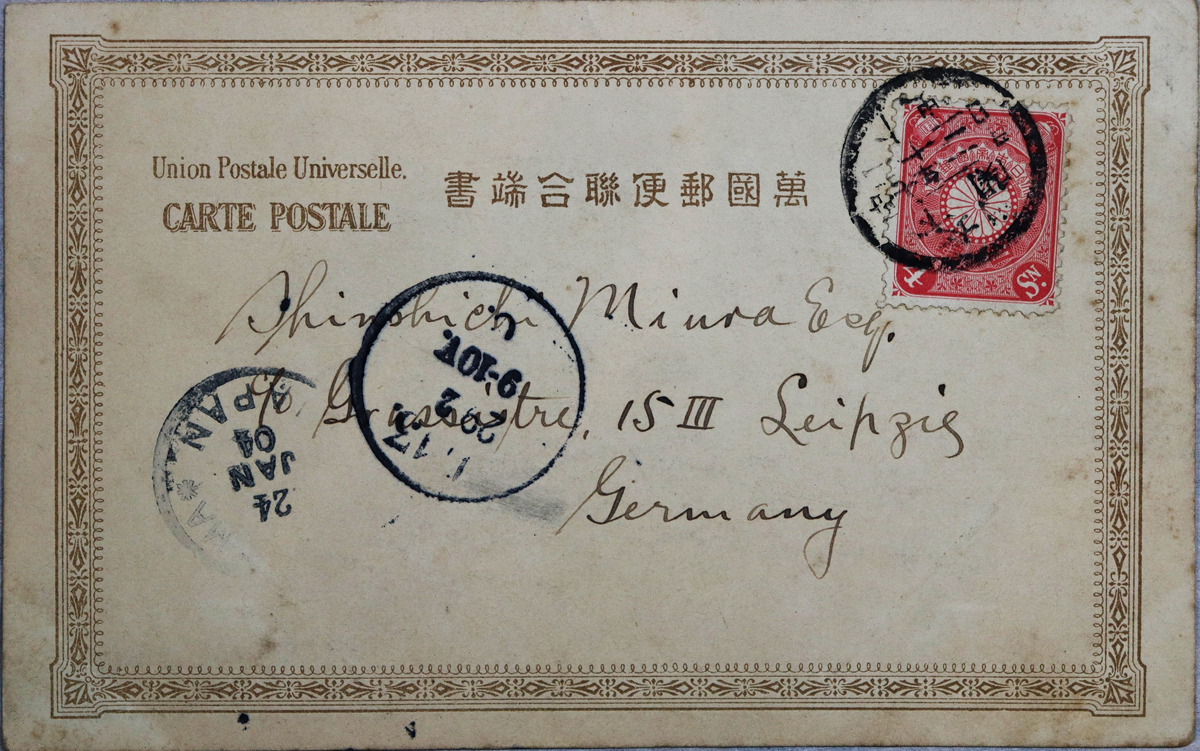 Union Postale Universelle.
CARTE POSTALE
書端合聯便郵國萬
4 Sn.
Shinshichi Miura Esq.
c/o Grassistre, 15 III Leipzig
Germany
APAN
24
JAN
04
9-10V.
29 2